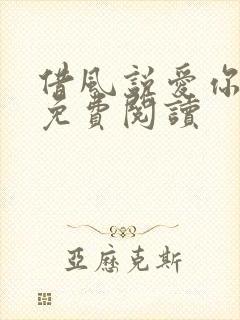 借風說愛你
免費閱讀
亞歷克斯